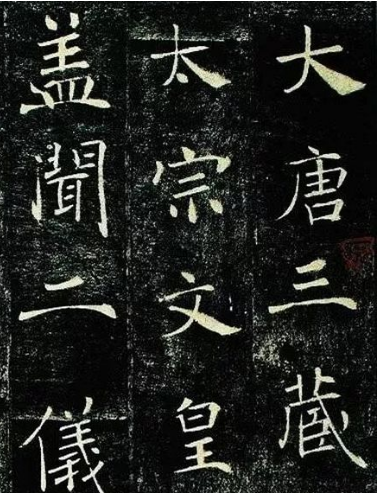 大唐三藏
太宗文皇
盖聞二儀